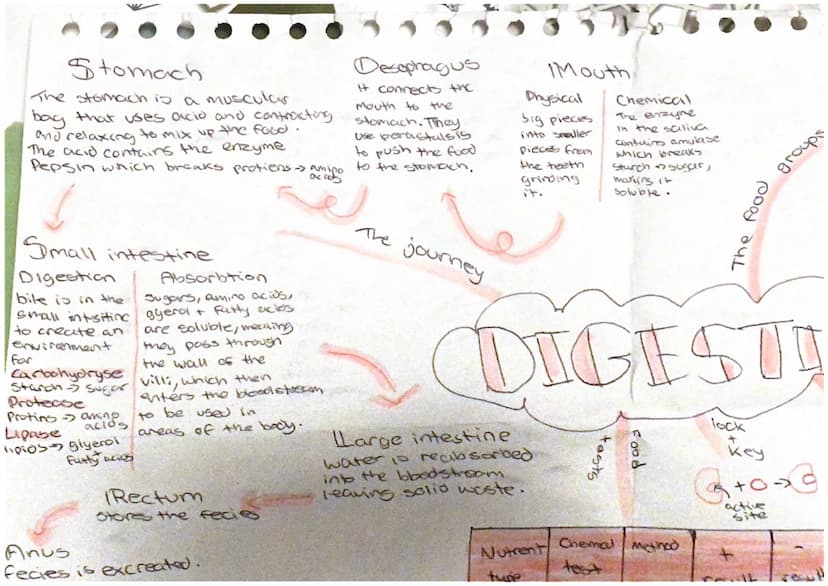 Stomach
The stomach is a muscular
bag that uses acid and contracting
and relaxing to mix up the food.
The acid contains the enzyme
Pepsin which breaks protiens → amino
acids
Oesophagus
it connects the
mouth to the
stomach. They
use perastalsis
to push the food
to the stomach.
Mouth
Physical
big pieces
into smaller
pieces from
the teeth
grinding
it.
Chemical
The enzyme
in the saliva
contains amylase
which breaks
starch → sugar,
making it
soluble.
The food groups
The journey
Small intestine
Digestion
bile is in the
small intestine
to create an
environment
for
Carbohydryse
Starch → sugar
Protease
Protins → amino
acids
Lipase
lipids → glyerol
+
fatty acids
Absorbtion
sugars, amino acids,
glyerol + fatty acids
are soluble, meaning
they pass through
the wall of the
villi, which then
enters the bloodstream
to be used in
areas of the body.
DIGESTI
Large intestine
water is reabsorbed
into the bloodstream
leaving solid waste.
food
tests
lock
+
key
+ →
active
site
Rectum
stores the fecies
Anus
fecies is excreated.
Nutrient
type
Chemical
test
Method
+
-